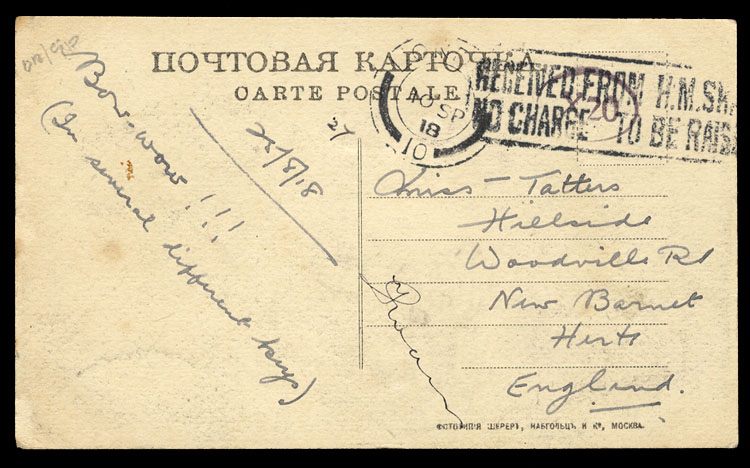 ПОЧТОВАЯ КАРТОЧКА
CARTE POSTALE
RECEIVED FROM H.M.SH
NO CHARGE TO BE RAIS
10 SP
18
101
20
Bow-wow!!!
(In several different keys)
25/8/18
Miss - Tatters
Hillside
Woodville Rd
New Barnet
Herts
England.
ФОТОТИПІЯ ШЕРЕРЪ, НАБГОЛЬЦЪ И Кº, МОСКВА.